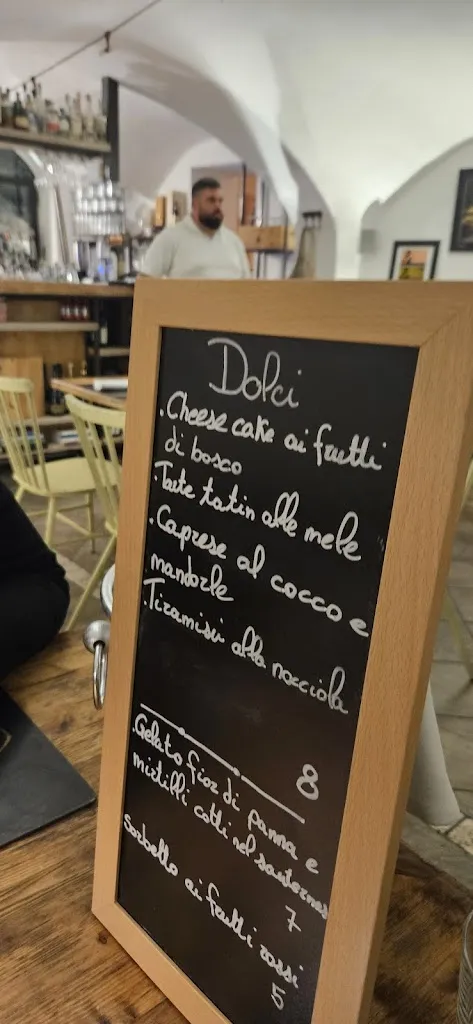 Dolci
. Cheese cake ai frutti
di bosco
. Tarte tatin alle mele
. Caprese al cocco e
mandorle
. Tiramisù alla nocciola
8
. Gelato fior di panna e
mirtilli cotti nel sauternes
7
sorbetto ai frutti rossi
5